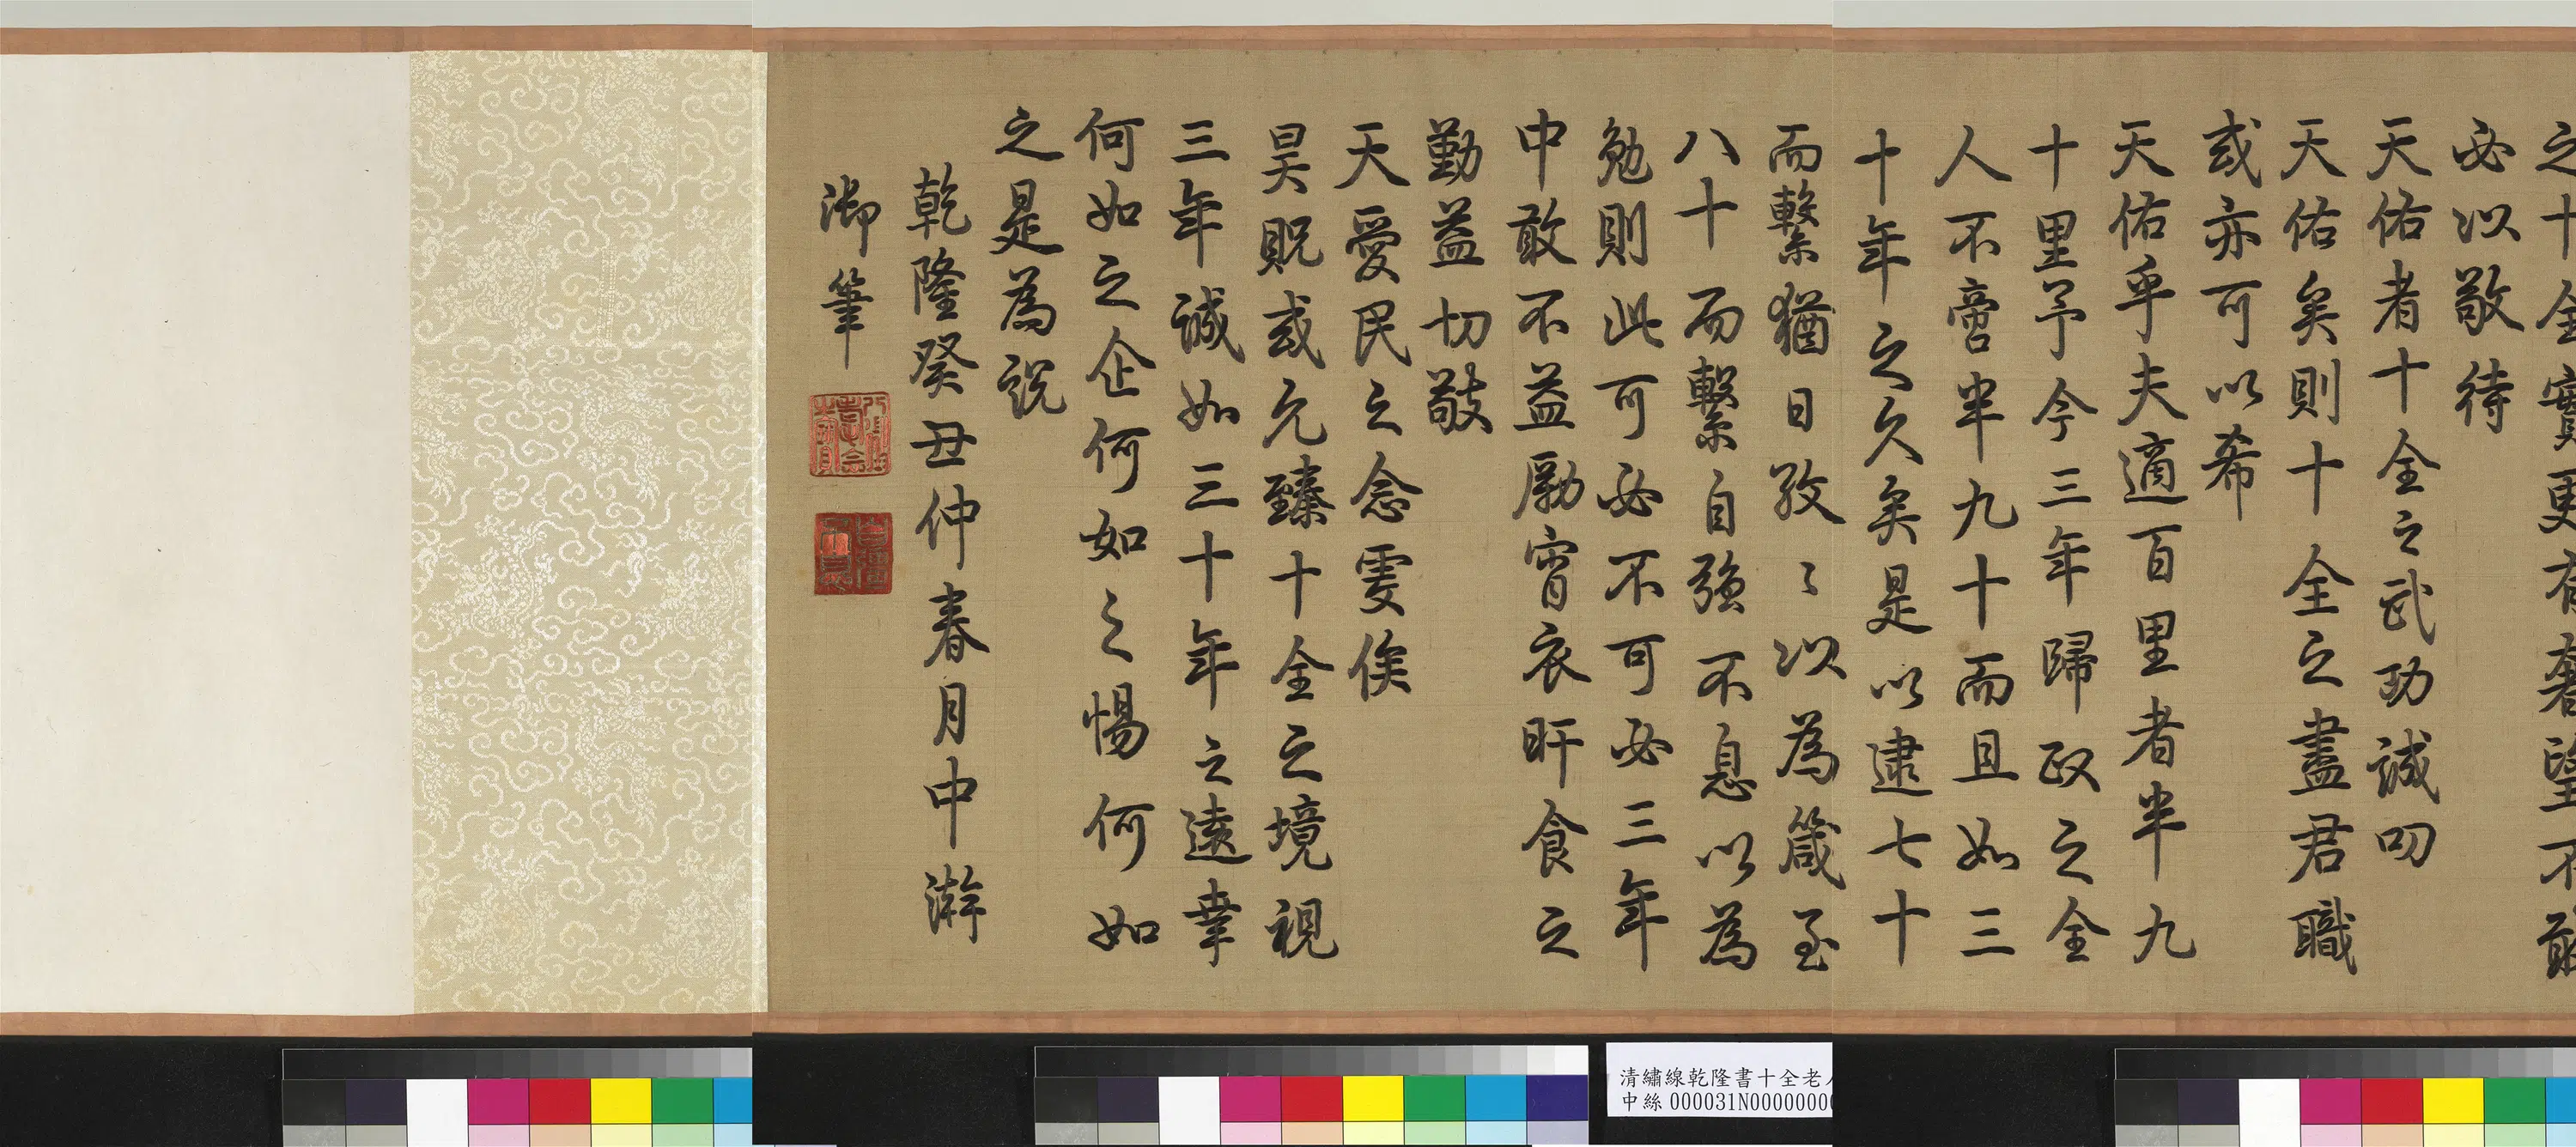 之十全實更有奢望不敢
必以敬待
天佑者十全之武功誠叨
天佑矣則十全之盡君職
或亦可以希
天佑乎夫適百里者半九
十里予今三年歸政之全
人不啻半九十而且如三
十年之久矣是以逮七十
而繫猶日孜〻以為箴至
八十而繫自強不息以為
勉則此可必不可必三年
中敢不益勵宵衣旰食之
勤益切敬
天愛民之念虔俟
昊貺或允臻十全之境視
三年誠如三十年之遠幸
何如之企何如之惕何如
之是為說
乾隆癸丑仲春月中澣
御筆
八徵耄念之寶
自彊不息
清繡線乾隆書十全老
中絲 000031N00000000